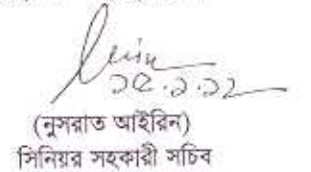 ১৫.১.১২
(নুসরাত আইরিন)
সিনিয়র সহকারী সচিব